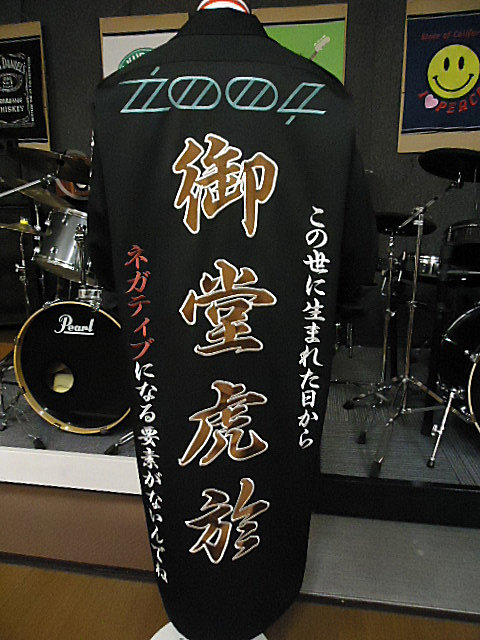 ŹOOĻ
この世に生まれた日から
御堂虎於
ネガティブになる要素がないんでね
Pearl
State of California
I PEACE
WHISKEY